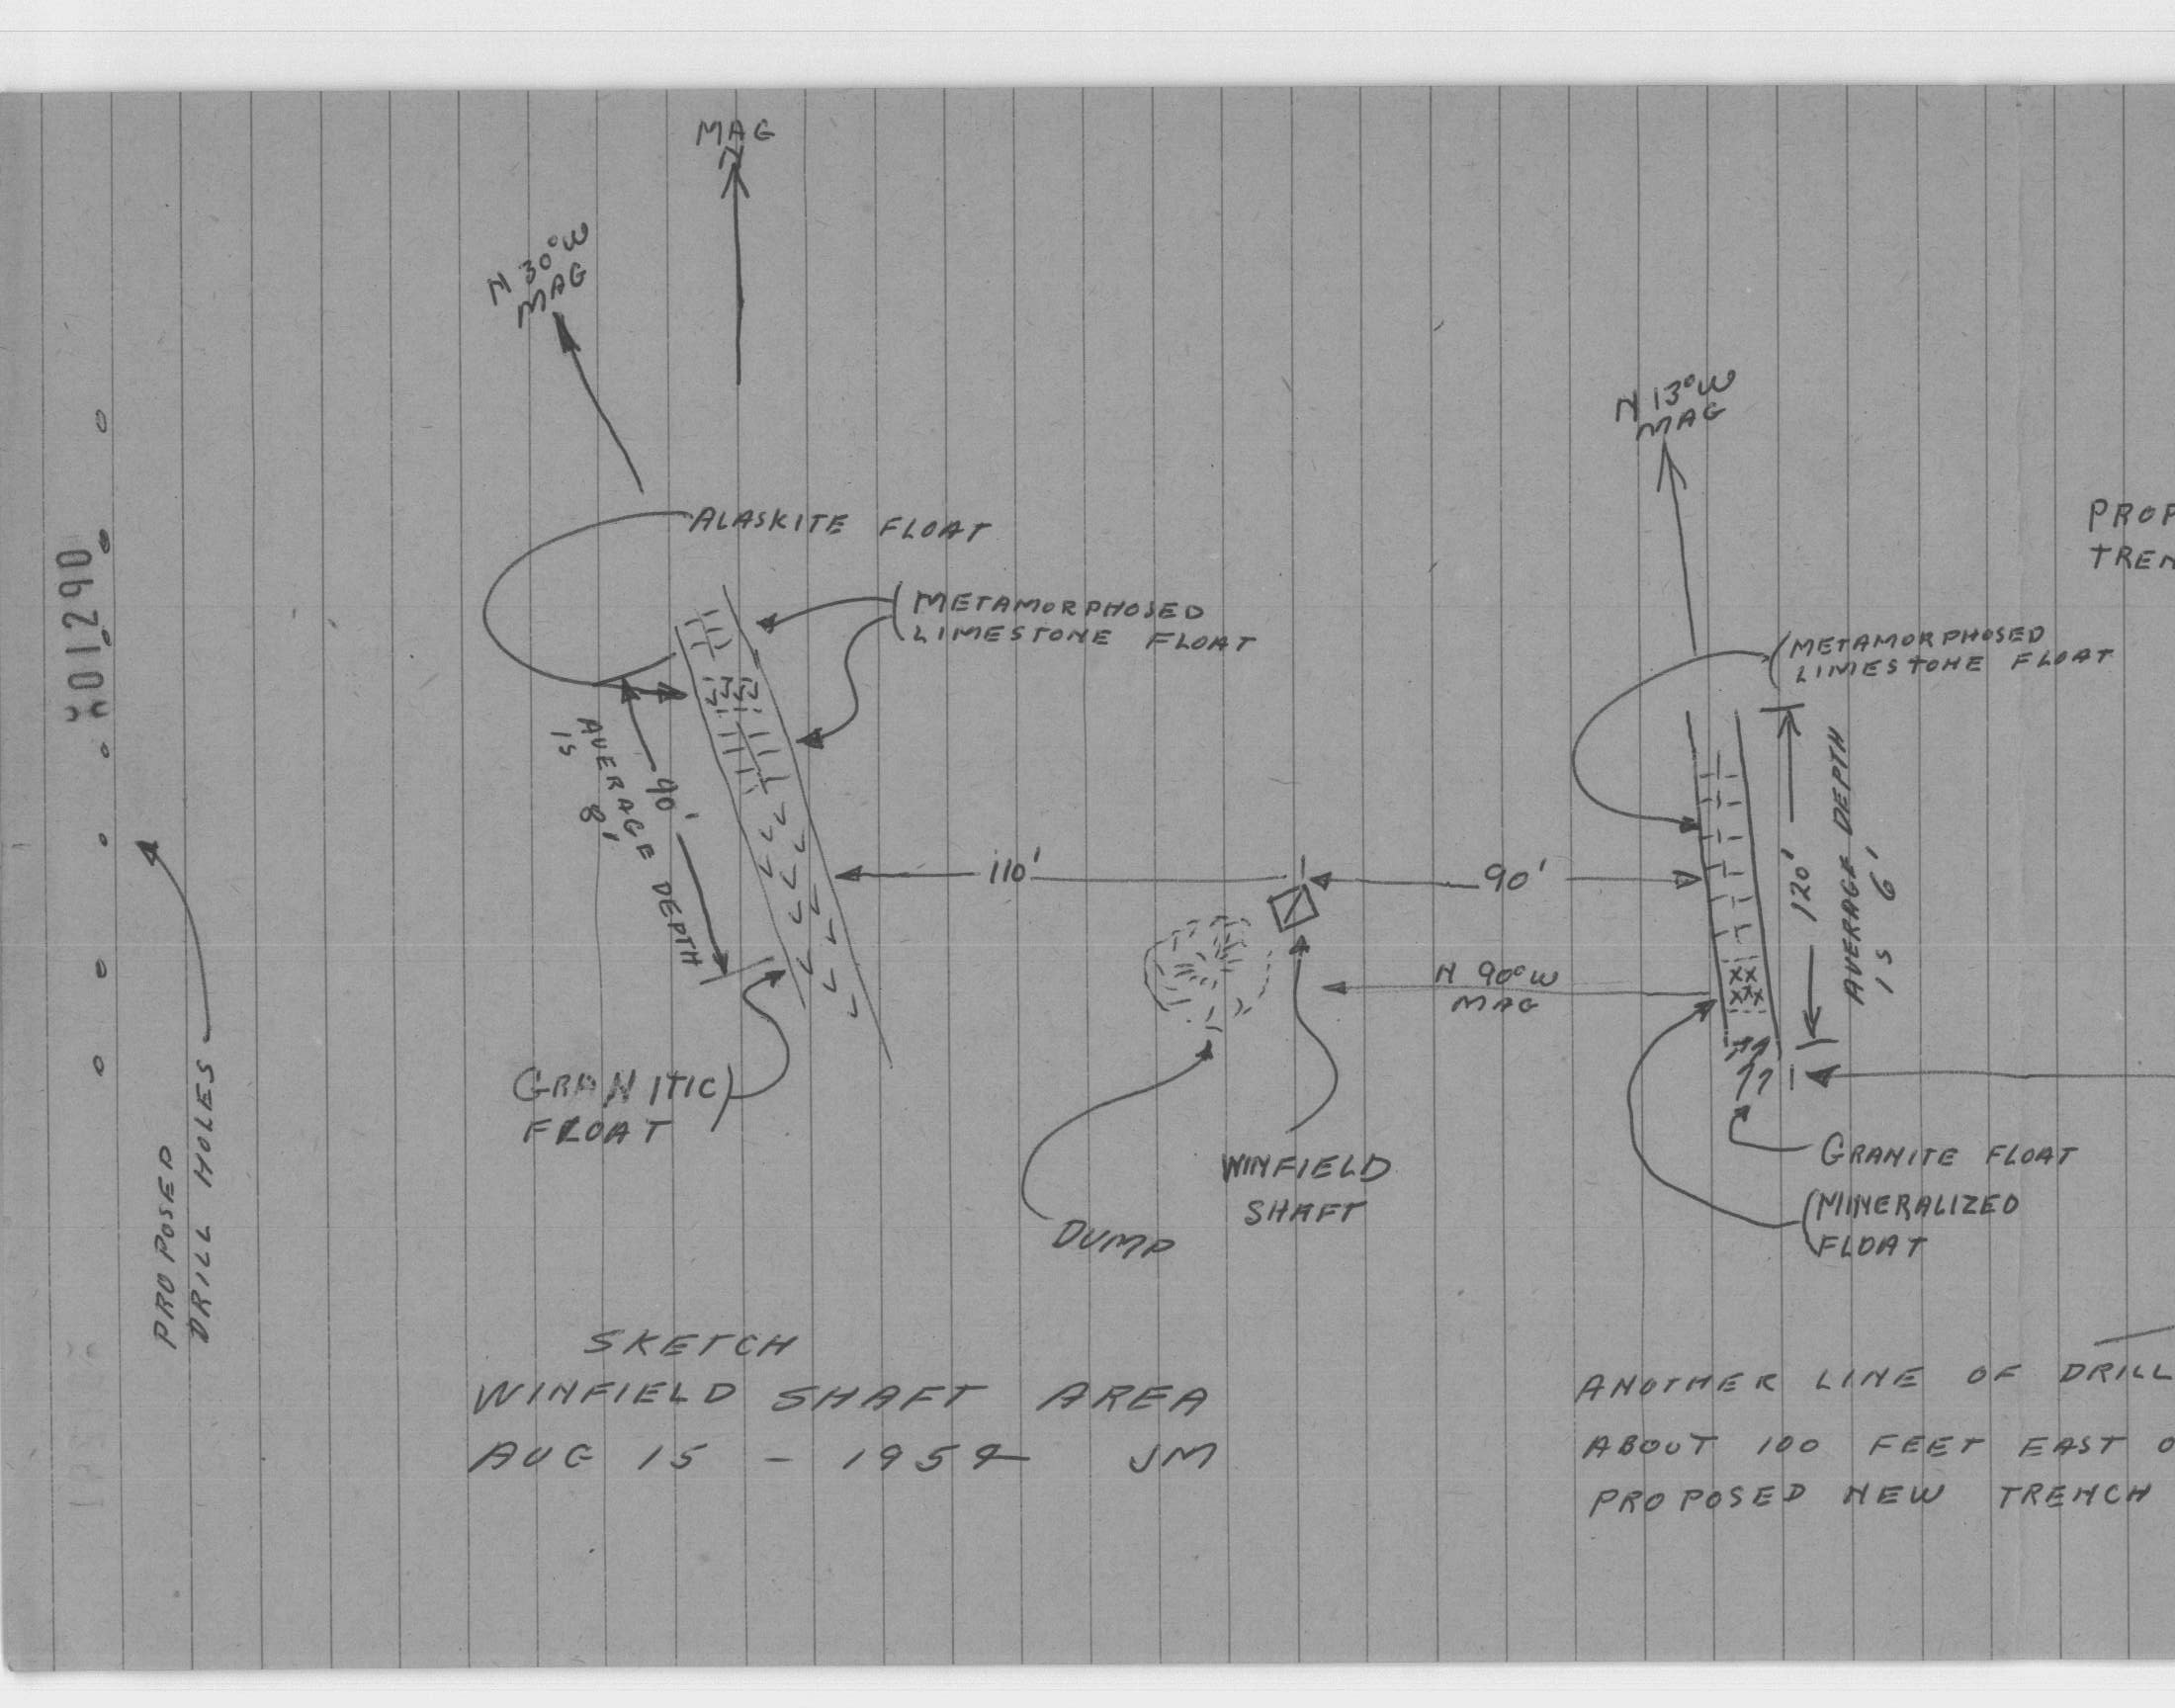 MAG
N
N 30°W
MAG
N 13°W
MAG
ALASKITE FLOAT
METAMORPHOSED
LIMESTONE FLOAT
PROP
TREN
METAMORPHOSED
LIMESTONE FLOAT
X01290
AVERAGE DEPTH
IS 8'
110'
90'
120'
AVERAGE DEPTH
IS 6'
N 90°W
MAG
GRANITIC
FLOAT
WINFIELD
SHAFT
DUMP
GRANITE FLOAT
MINERALIZED
FLOAT
PROPOSED
DRILL HOLES
SKETCH
WINFIELD SHAFT AREA
AUG 15 - 1959 JM
ANOTHER LINE OF DRILL
ABOUT 100 FEET EAST O
PROPOSED NEW TRENCH